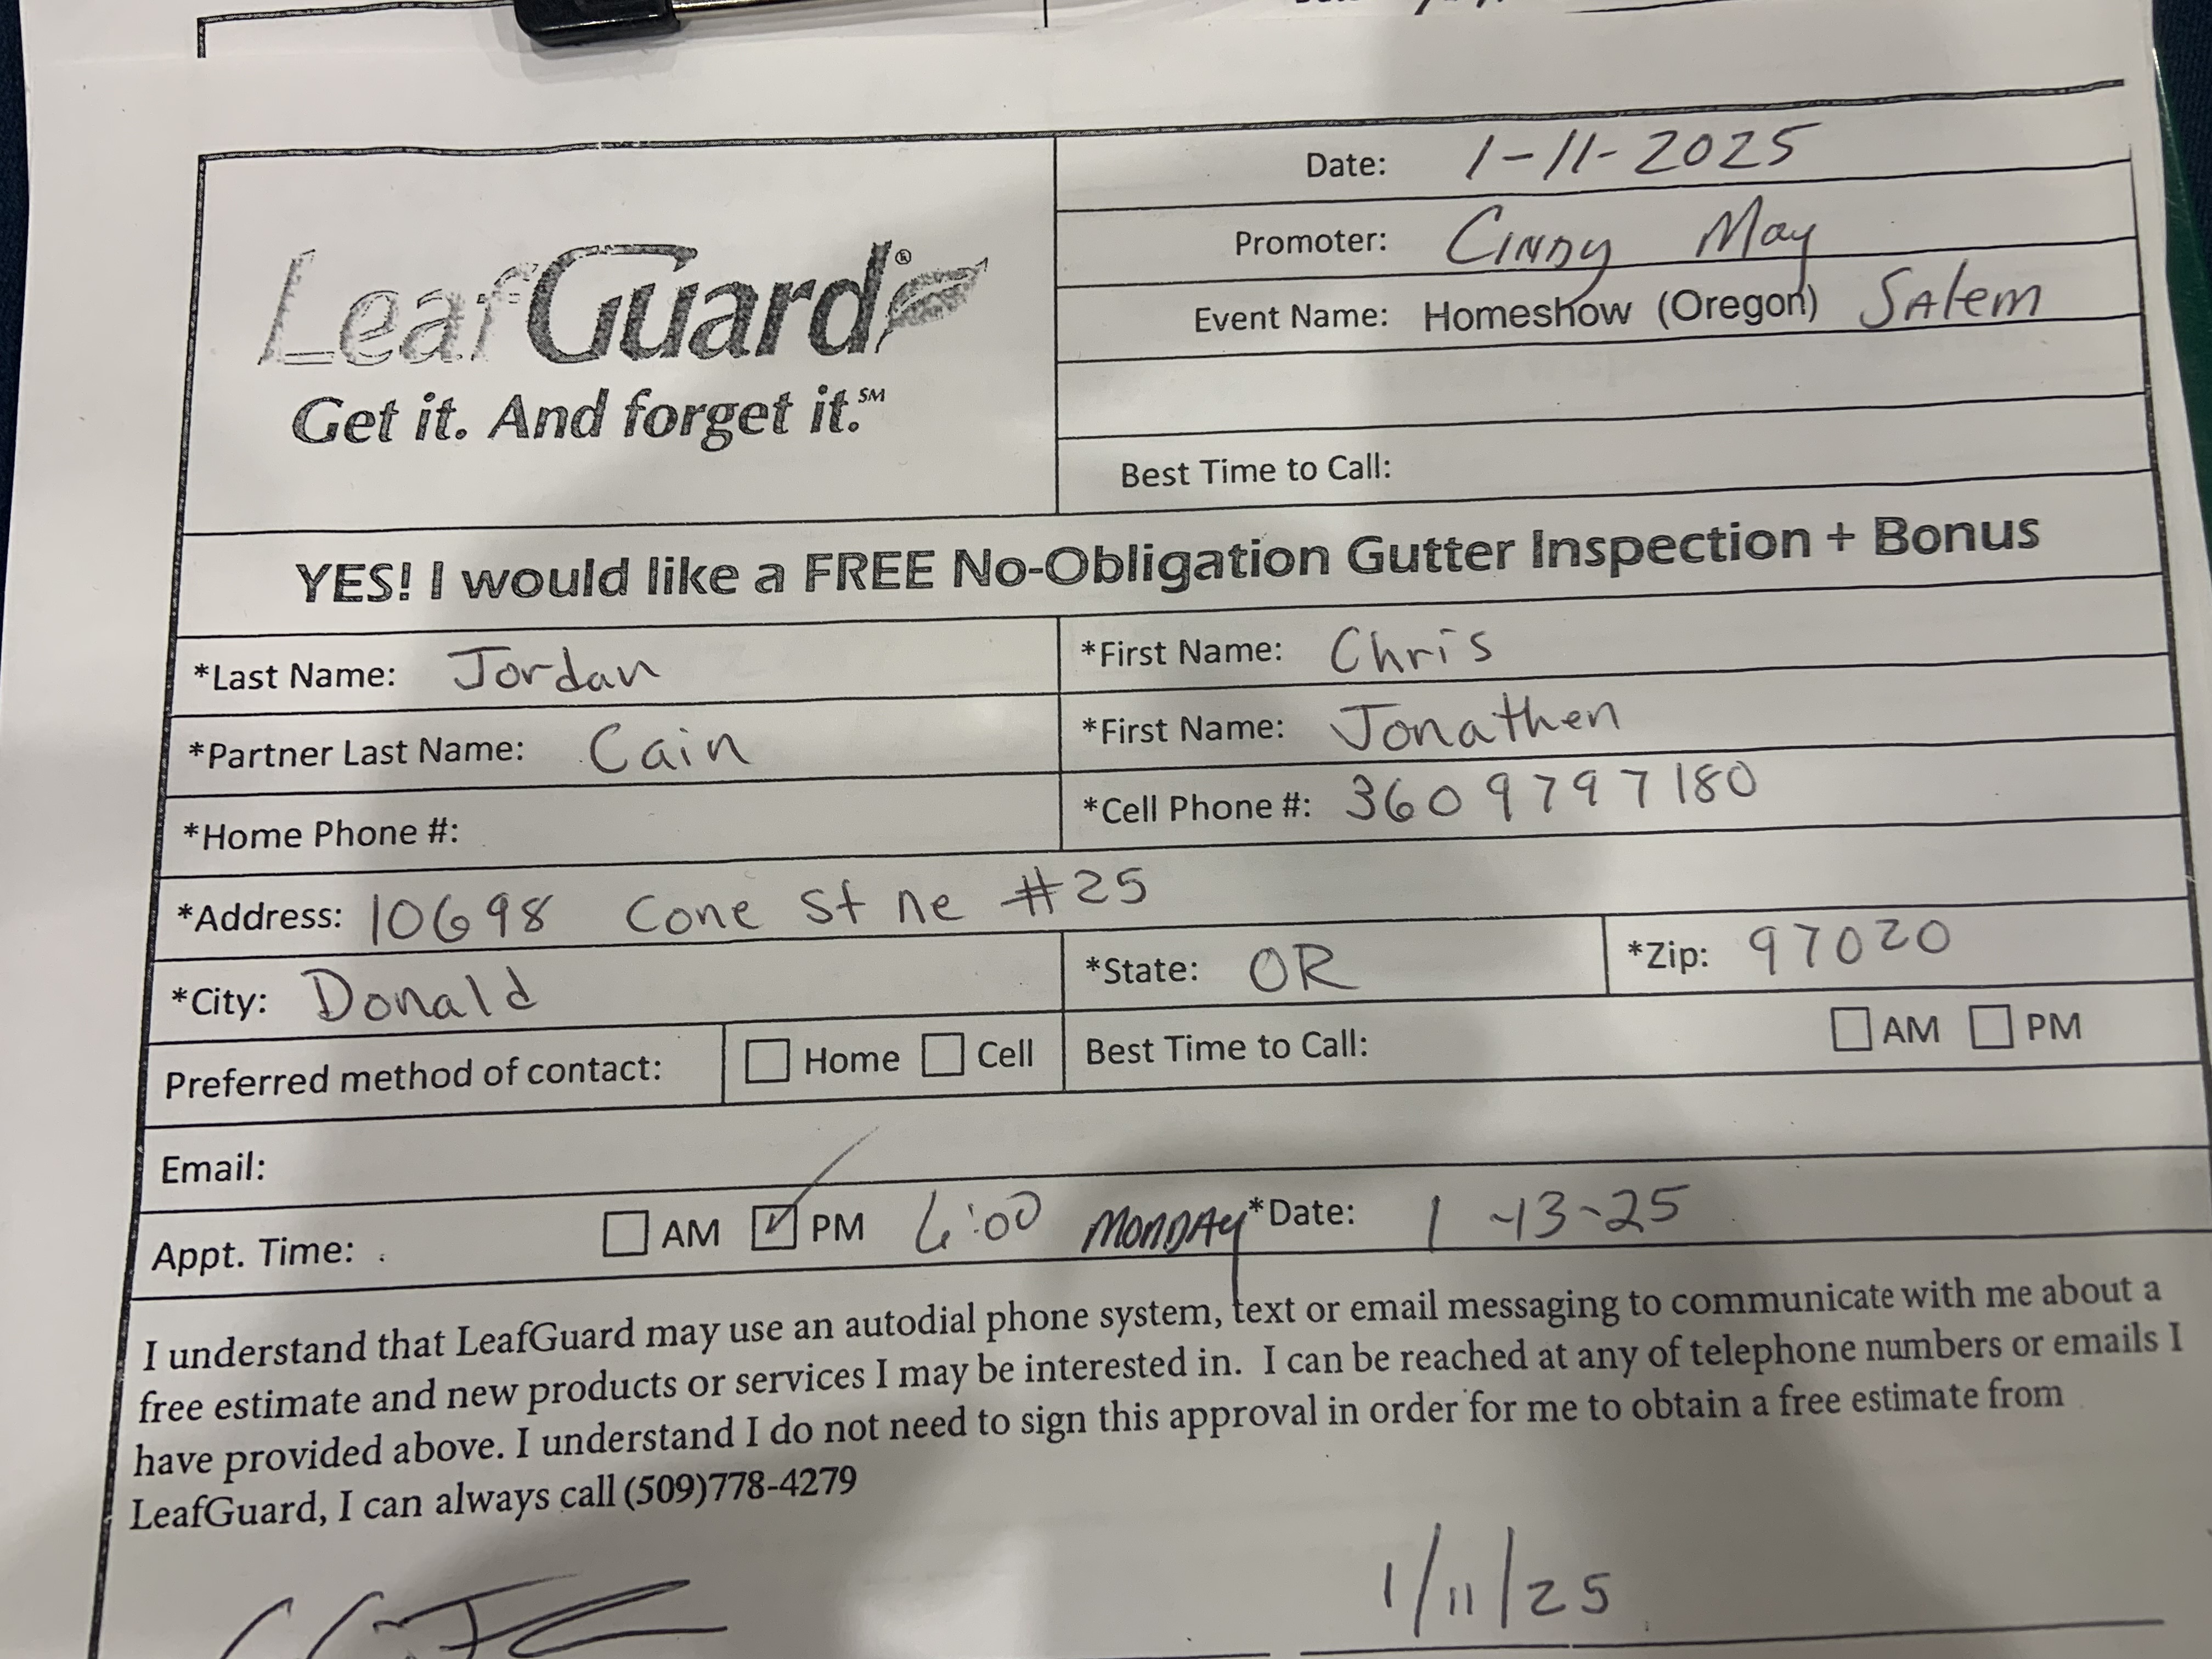 Date: 1-11-2025
Promoter: Cindy May
Event Name: Homeshow (Oregon) Salem
LeafGuard®
Get it. And forget it.℠
Best Time to Call:
YES! I would like a FREE No-Obligation Gutter Inspection + Bonus
*Last Name: Jordan *First Name: Chris
*Partner Last Name: Cain *First Name: Jonathen
*Home Phone #: *Cell Phone #: 360 979 7180
*Address: 10698 Cone st ne #25
*City: Donald *State: OR *Zip: 97020
Preferred method of contact: ☐ Home ☐ Cell Best Time to Call: ☐ AM ☐ PM
Email:
Appt. Time: ☐ AM ☑ PM 6:00 Monday *Date: 1-13-25
I understand that LeafGuard may use an autodial phone system, text or email messaging to communicate with me about a
free estimate and new products or services I may be interested in. I can be reached at any of telephone numbers or emails I
have provided above. I understand I do not need to sign this approval in order for me to obtain a free estimate from
LeafGuard, I can always call (509)778-4279
1/11/25